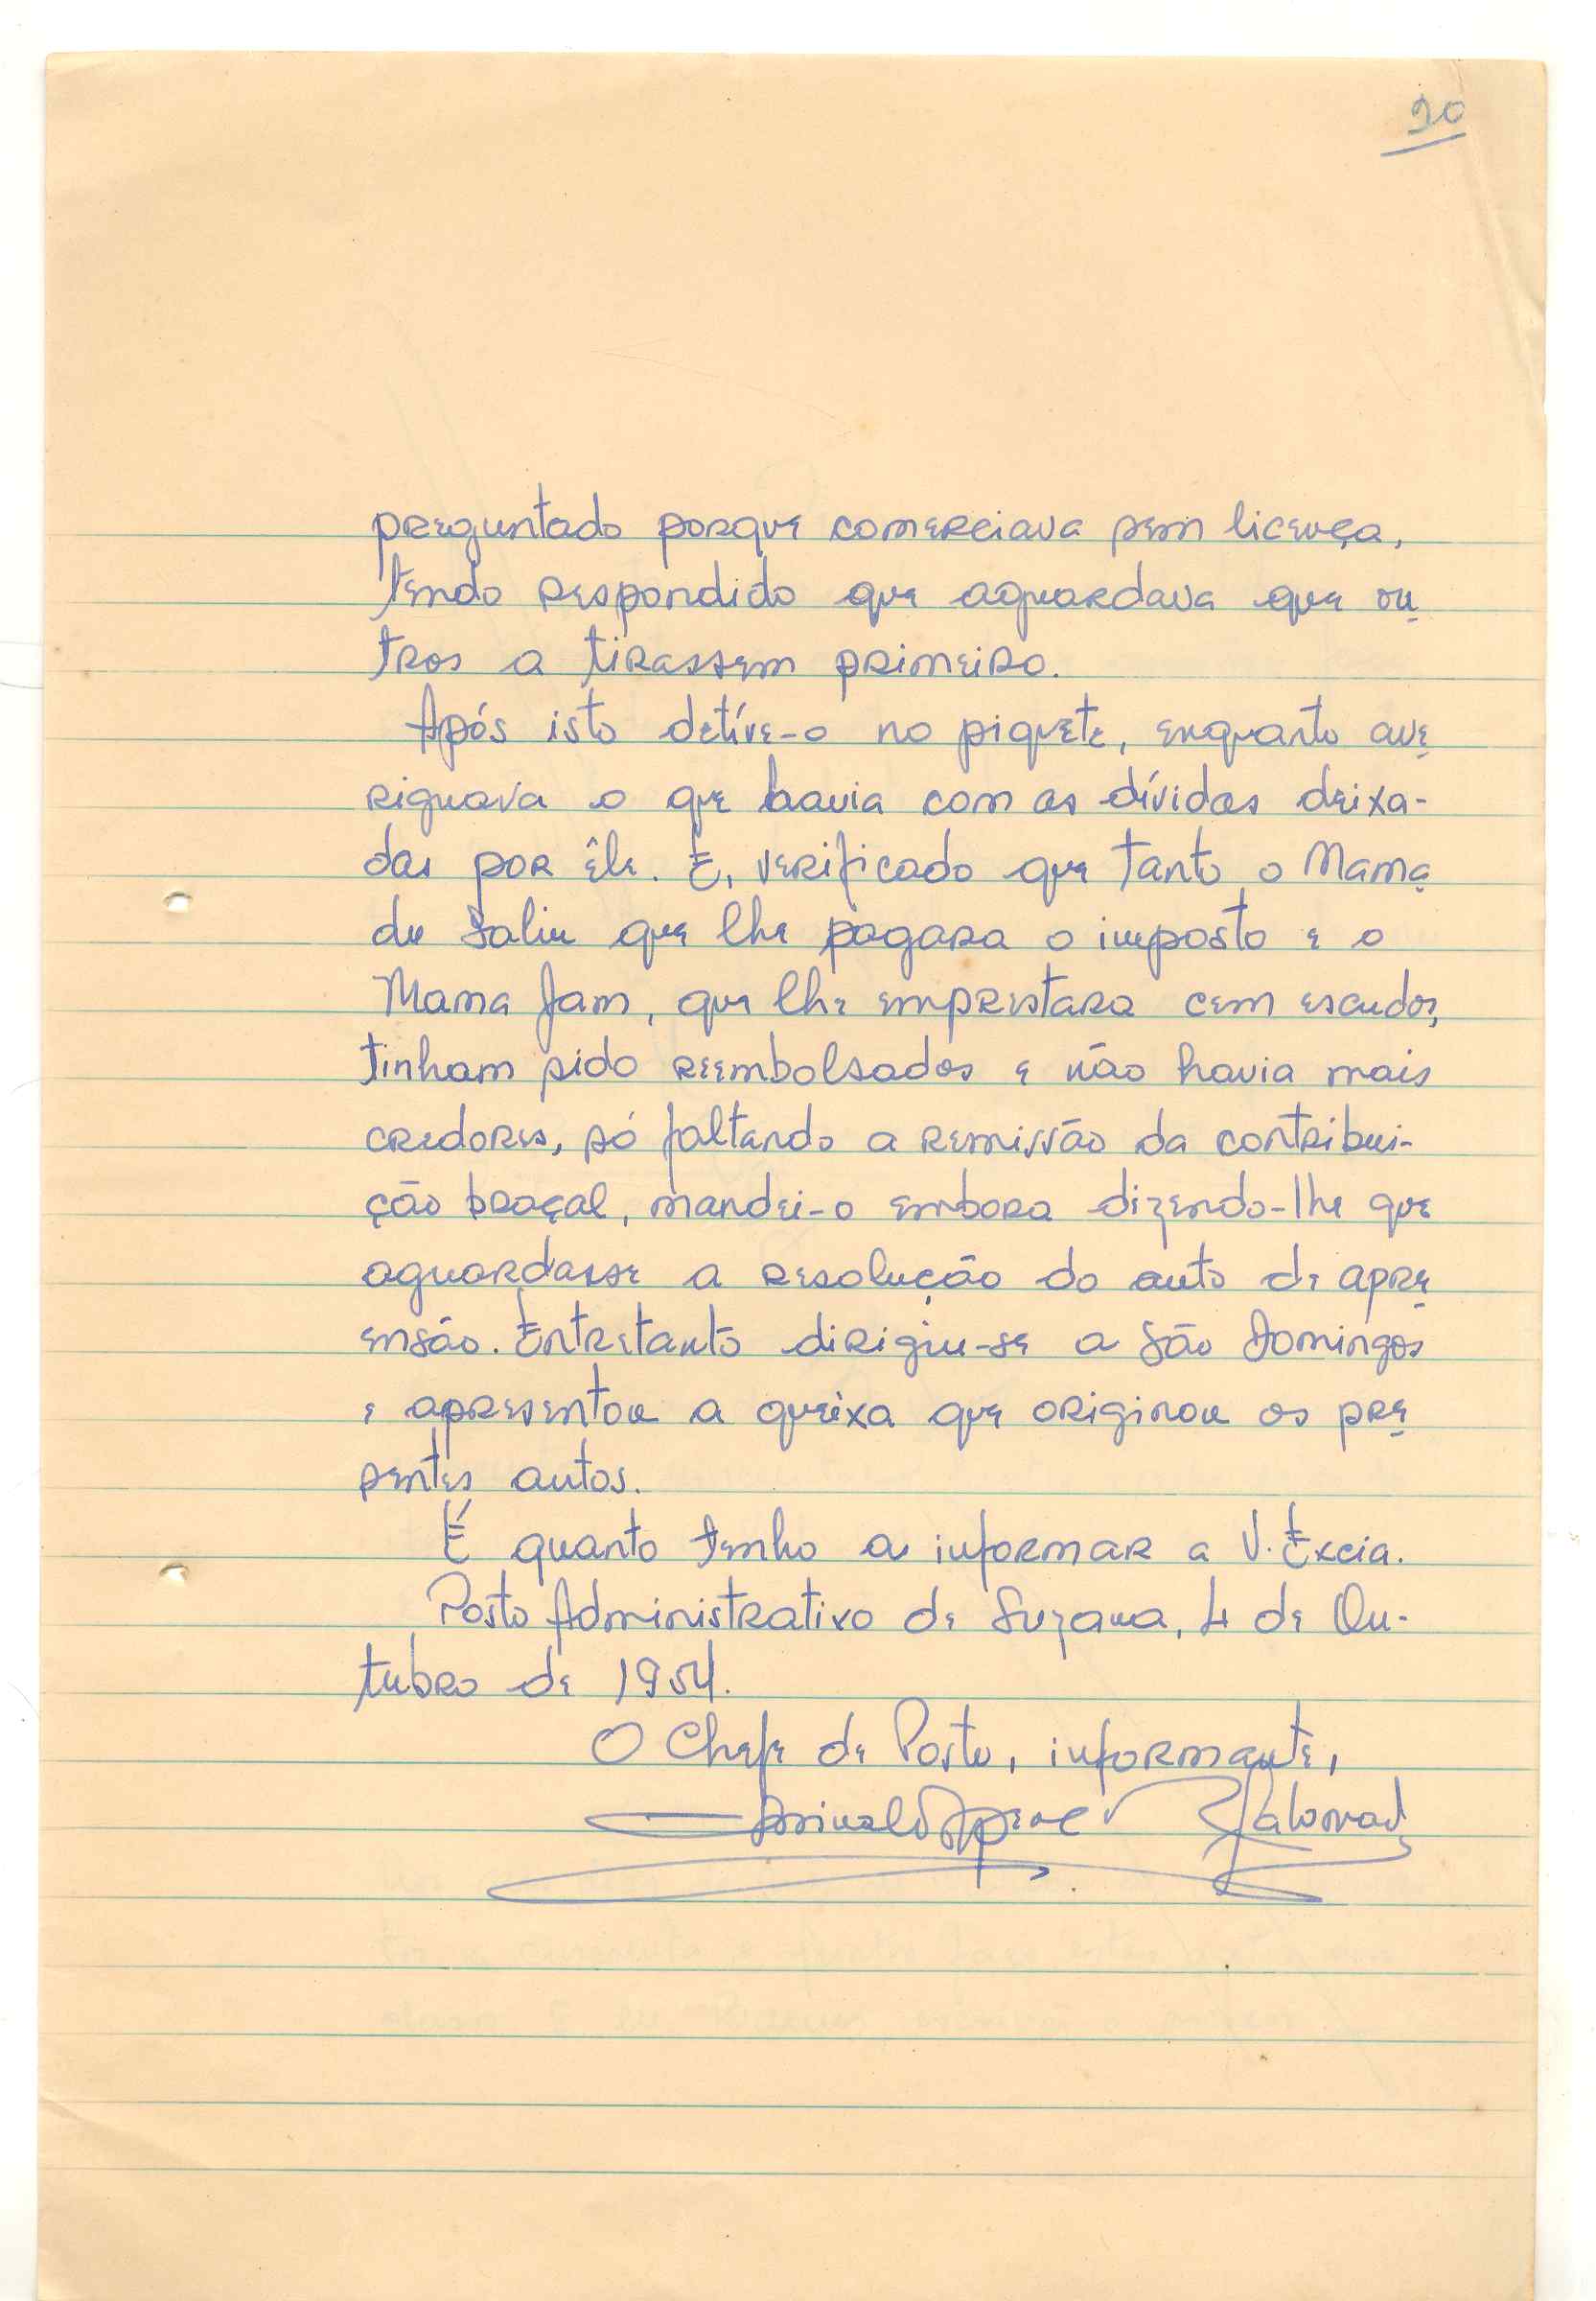 20
preguntado porque comerciava sem licença,
tendo respondido que aguardava que ou
tros a tirassem primeiro.
Após isto detive-o no piquete, enquanto ave
riguava o que havia com as dívidas deixa-
das por êle. E, verificado que tanto o Mama
du Saliu que lhe pagara o imposto e o
Mama Jam, que lhe emprestara cem escudos,
tinham sido reembolsados e não havia mais
credores, só faltando a remissão da contribui-
ção braçal, mandei-o embora dizendo-lhe que
aguardasse a resolução do auto de apre
ensão. Entretanto dirigiu-se a São Domingos
e apresentou a queixa que originou os pre
sentes autos.
É quanto tenho a informar a V. Excia.
Posto Administrativo de Suzana, 4 de Ou-
tubro de 1954.
O Chefe de Posto, informante,